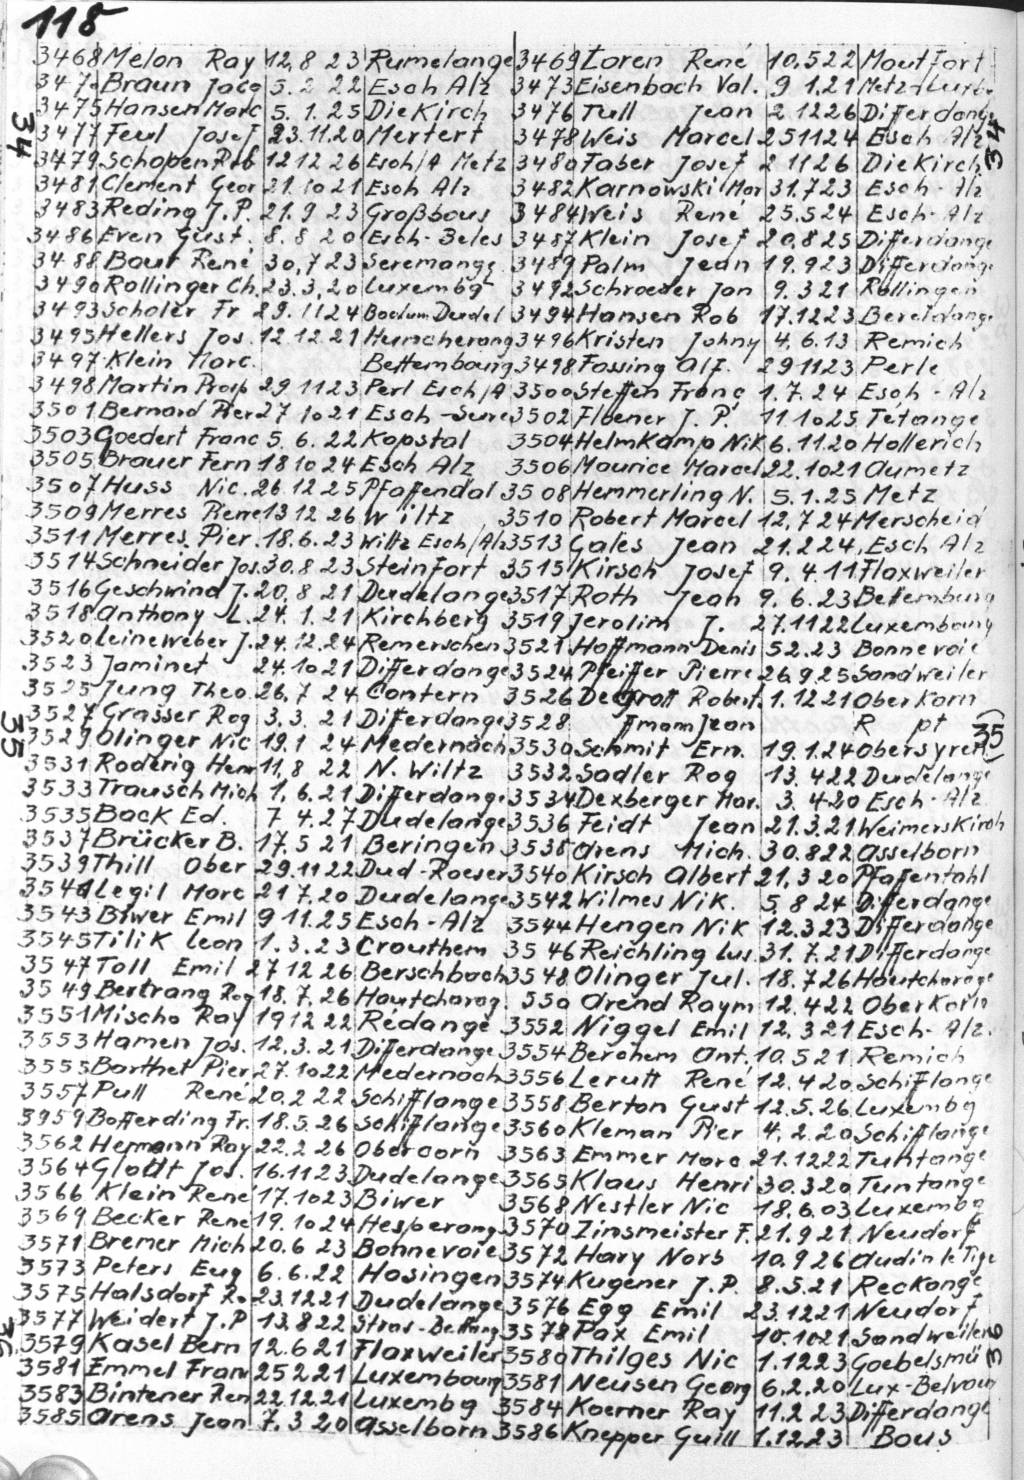 118
3468 Melon Ray 12.8 23 Rumelange 3469 Loren René 10.5 22 Moutfort
347 Braun Jacq 5.2 22 Esch Alz 3473 Eisenbach Val. 9 1.21 Metz-Luxbg
3475 Hansen Marc 5.1.25 Diekirch 3476 Tull Jean 2 12 26 Differdange
34 3477 Feul Josef 23.11.20 Mertert 3478 Weis Marcel 25 11 24 Esch Alz 34
3479 Schopen Rob 12 12 26 Esch/A Metz 3480 Faber Josef 2 11 26 Diekirch
3481 Clement Geor 21.10 21 Esch Alz 3482 Karnowski Mar 31.7 23 Esch-Alz
3483 Reding J.P. 21.9 23 Großbous 3484 Weis René 25.5 24 Esch-Alz
3486 Even Gust. 8.8 20 Esch-Beles 3487 Klein Josef 20.8 25 Differdange
3488 Bour René 30,7 23 Seremange 3489 Palm Jean 19.9 23 Differdange
3490 Rollinger Ch. 23.3,20 Luxembg 3492 Schroeder Jon 9.3 21 Rollingen
3493 Scholer Fr 29.11 24 Bochum Dudel 3494 Hansen Rob 17.12 23 Bereldange
3495 Hellers Jos. 12.12.21 Huncherang 3496 Kristen Johny 4.6.13 Remich
3497 Klein Marc. Bettembourg 3498 Fassing Alf. 29 11 23 Perle
3498 Martin Prosp 29 11 23 Perl Esch/A 3500 Steffen Franc 1.7.24 Esch-Alz
3501 Bernard Pier 27 10 21 Esch-Sure 3502 Floener J.P. 11.10 25 Tetange
3503 Goedert Franc 5.6.22 Kopstal 3504 Helmkamp Nik 6.11.20 Hollerich
3505 Brauer Fern 18 10 24 Esch Alz 3506 Maurice Marcel 22.10 21 Aumetz
3507 Huss Nic. 26.12 25 Pfaffendal 3508 Hemmerling N. 5.1.25 Metz
3509 Merres Rene 13 12 26 Wiltz 3510 Robert Marcel 12.7 24 Merscheid
3511 Merres Pier. 18.6.23 Wiltz Esch/Alz 3513 Gales Jean 21.2 24, Esch Alz
3514 Schneider Jos. 30.8 23 Steinfort 3515 Kirsch Josef 9.4.11 Flaxweiler
3516 Geschwind J. 20,8 21 Dudelange 3517 Roth Jean 9.6.23 Bettemburg
3518 Anthony L. 24.1.21 Kirchberg 3519 Jerolim J. 27.11 22 Luxembourg
3520 Leineweber J. 24.12.24 Remerschen 3521 Hoffmann Denis 5 2.23 Bonnevoie
3523 Jaminet 24.10 21 Differdange 3524 Pfeiffer Pierre 26.9 25 Sandweiler
3525 Jung Theo. 26,7 24 Contern 3526 Degrott Robert. 1.12 21 Oberkorn
35 3527 Grasser Rog 3.3.21 Differdange 3528 Jean R pt 35
3529 Olinger Nic 19.1 24 Medernach 3530 Schmit Ern. 19.1.24 Obersyren
3531 Roderig Henr 11,8 22 N. Wiltz 3532 Sadler Rog 13.4 22 Dudelange
3533 Trausch Mich 1.6.21 Differdange 3534 Dexberger Mar. 3.4 20 Esch-Alz
3535 Back Ed. 7 4.27 Dudelange 3536 Feidt Jean 21.3.21. Weimerskirch
3537 Brücker B. 17.5 21 Beringen 3538 Arens Mich. 30.8 22 Asselborn
3539 Thill Ober 29.11 22 Dud-Roeser 3540 Kirsch Albert 21.3 20 Pfaffentahl
3541 Legil Marc 21 7.20 Dudelange 3542 Wilmes Nik. 5 8 24 Differdange
3543 Biwer Emil 9 11.25 Esch-Alz 3544 Hengen Nik 12.3 23 Differdange
3545 Tilik Leon 1.3.23 Crauthem 3546 Reichling Luc 31.7.21 Differdange
3547 Toll Emil 27 12 26 Berschbach 3548 Olinger Jul. 18.7 26 Hautcharage
3549 Bertrang Rog 18.7.26 Hautcharag. 550 Arend Raym 12.4 22 Oberkorn
3551 Mischo Ray 19 12 22 Rédange 3552 Niggel Emil 12.3 21 Esch-Alz.
3553 Hamen Jos. 12.3.21 Differdange 3554 Berchem Ant. 10.5 21 Remich
3555 Barthet Pier 27.10 22 Medernach 3556 Lerutt René 12.4 20 Schifflange
3557 Pull René 20.2 22 Schifflange 3558 Berton Gust 12.5.26 Luxembg
3959 Bofferding Fr. 18.5.26 Schifflange 3560 Kleman Pier 4.2.20 Schifflange
3562 Hermann Ray 22.2.26 Obercorn 3563 Emmer Marc 21.12 22 Tuntange
3564 Glodt Jos. 16.11 23 Dudelange 3565 Klaus Henri 30.3 20 Tuntange
3566 Klein Rene 17.10 23 Biwer 3568 Nestler Nic 18.6.03 Luxembg
3569 Becker Rene 19.10 24 Hesperang 3570 Zinsmeister F. 21.9 21 Neudorf
3571 Bremer Mich 20.6 23 Bonnevoie 3572 Hary Norb 10.9 26 Audin le Tige
3573 Peters Eug 6.6.22 Hosingen 3574 Kugener J.P. 8.5.21 Reckange
3575 Halsdorf R. 23.12.21 Dudelange 3576 Egg Emil 23.12 21 Neudorf
3577 Weidert J.P 13.8 22 Stras-Bettang 3578 Pax Emil 10.10 21 Sandweiler
3579 Kasel Bern 12.6 21 Flaxweiler 3580 Thilges Nic 1.12 23 Goebelsmü
3581 Emmel Fran 25 2 21 Luxembourg 3581 Neusen Georg 6.2.20 Lux-Belvoux
3583 Bintener Ren 22.12.21 Luxembg 3584 Koerner Ray 11.2 23 Differdange
3585 Arens Jean 7.3 20 Asselborn 3586 Knepper Guill 1.12.23 Bous